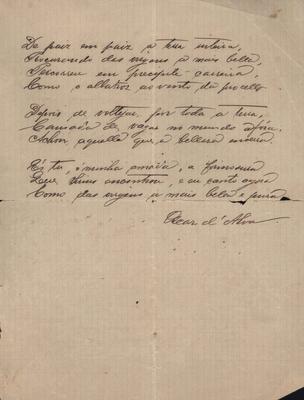 De paiz em paiz a terra inteira,
Procurando das virgens a mais bella,
Percorreu em precipite carreira,
Como o albatroz ao vento da procella

Depois de voltejar por toda a terra,
Cansada de vagar no mundo afóra,
Achou aquella que a belleza encerra.

És tu, minha amada, a formosura
Que Venus encontrou, e eu canto agora
Como das virgens a mais bella e pura

Oscar d'Alva